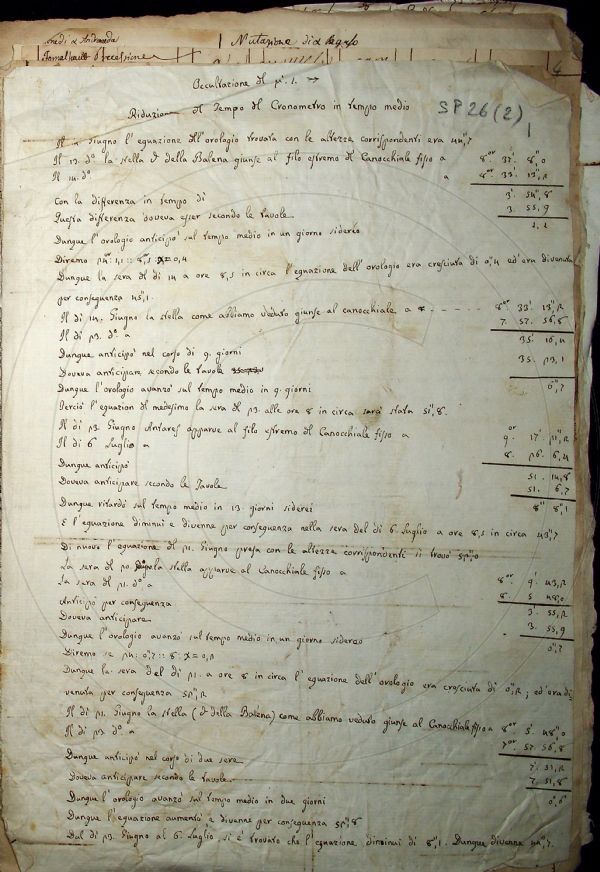 Mutazione di α Pegaso
Occultazione del
Riduzione del Tempo del Cronometro in tempo medio
SP 26 (2)
1
Giugno l'equazione dell'orologio trovata con le altezze corrispondenti era
Il 13. d.° la stella δ della Balena giunse al filo estremo del Canocchiale fisso a 8.or 37.' 8",0
Il 14. d.° a 8.or 33.'
Con la differenza in tempo di 3.' 54",8
Questa differenza doveva esser secondo le tavole 3. 55,9
Dunque l'orologio anticipò sul tempo medio in un giorno sidereo 1,1
Diremo 1,1 :: 8,5 x = 0,4
Dunque la sera del dì 14 a ore 8,5 in circa l'equazione dell'orologio era cresciuta di 0",4 ed era divenuta
per conseguenza 45",1.
Il dì 14. Giugno la stella come abbiamo veduto giunse al canocchiale a 8.or 33.'
Il dì 23. d.° a 7. 57. 56,8
Dunque anticipò nel corso di 9. giorni 35. 16,4
Doveva anticipare secondo le tavole 35.
Dunque l'orologio avanzò sul tempo medio in 9. giorni 0",7
Perciò l'equazion del medesimo la sera del 23. alle ore 8 in circa sarà stata 51",8.
Il dì 23 Giugno Antares apparve al filo estremo del Canocchiale fisso a 9.or 17.'
Il dì 6 Luglio a 8. 26. 6,4
Dunque anticipò 51. 14,8
Doveva anticipare secondo le Tavole 51. 6,7
Dunque ritardò sul tempo medio in 13 giorni siderei 8" 8,1
E l'equazione diminuì e divenne per conseguenza nella sera del dì 6. Luglio a ore 8,5 in circa 43",7
Di nuovo l'equazione del 21. Giugno presa con le altezze corrispondenti si trovò 52",0
La sera del 20. la stella apparve al Canocchiale fisso a 8.or 9.' 43,2
La sera del 21. d.° a 8. 5 48,0
Anticipò per conseguenza 3.' 55,2
Doveva anticipare 3. 55,9
Dunque l'orologio avanzò sul tempo medio in un giorno sidereo 0",7
Diremo se 24: 0",7 :: 8: x = 0,2
Dunque la sera del dì 21. a ore 8 in circa l'equazione dell'orologio era cresciuta di 0",2; ed era di
venuta per conseguenza 52",2
Il dì 21. Giugno la stella (δ della Balena) come abbiamo veduto giunse al Canocchiale fisso a 8.or 5.' 48",0
Il dì 23 d.° a 7.or 57. 56,8
Dunque anticipò nel corso di due sere 7. 51,2
Doveva anticipare secondo le tavole 7. 51,8
Dunque l'orologio avanzò sul tempo medio in due giorni 0",6
Dunque l'equazione aumentò e divenne per conseguenza 52",8
Dal dì 23. Giugno al 6. Luglio si è trovato che l'equazione diminuì di 8",1. Dunque divenne 44",7.